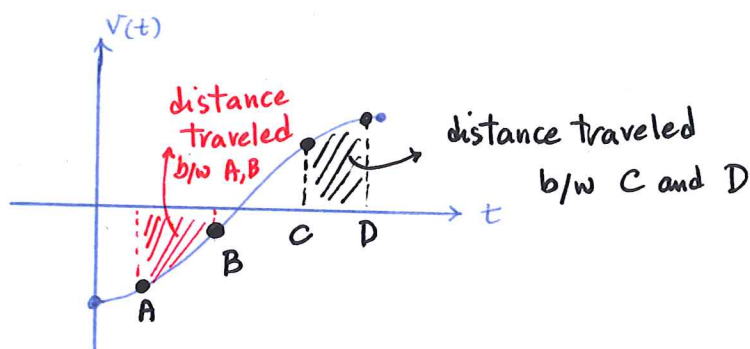 V(t)
distance
traveled
b/w A,B
distance traveled
b/w C and D
t
C
D
B
A